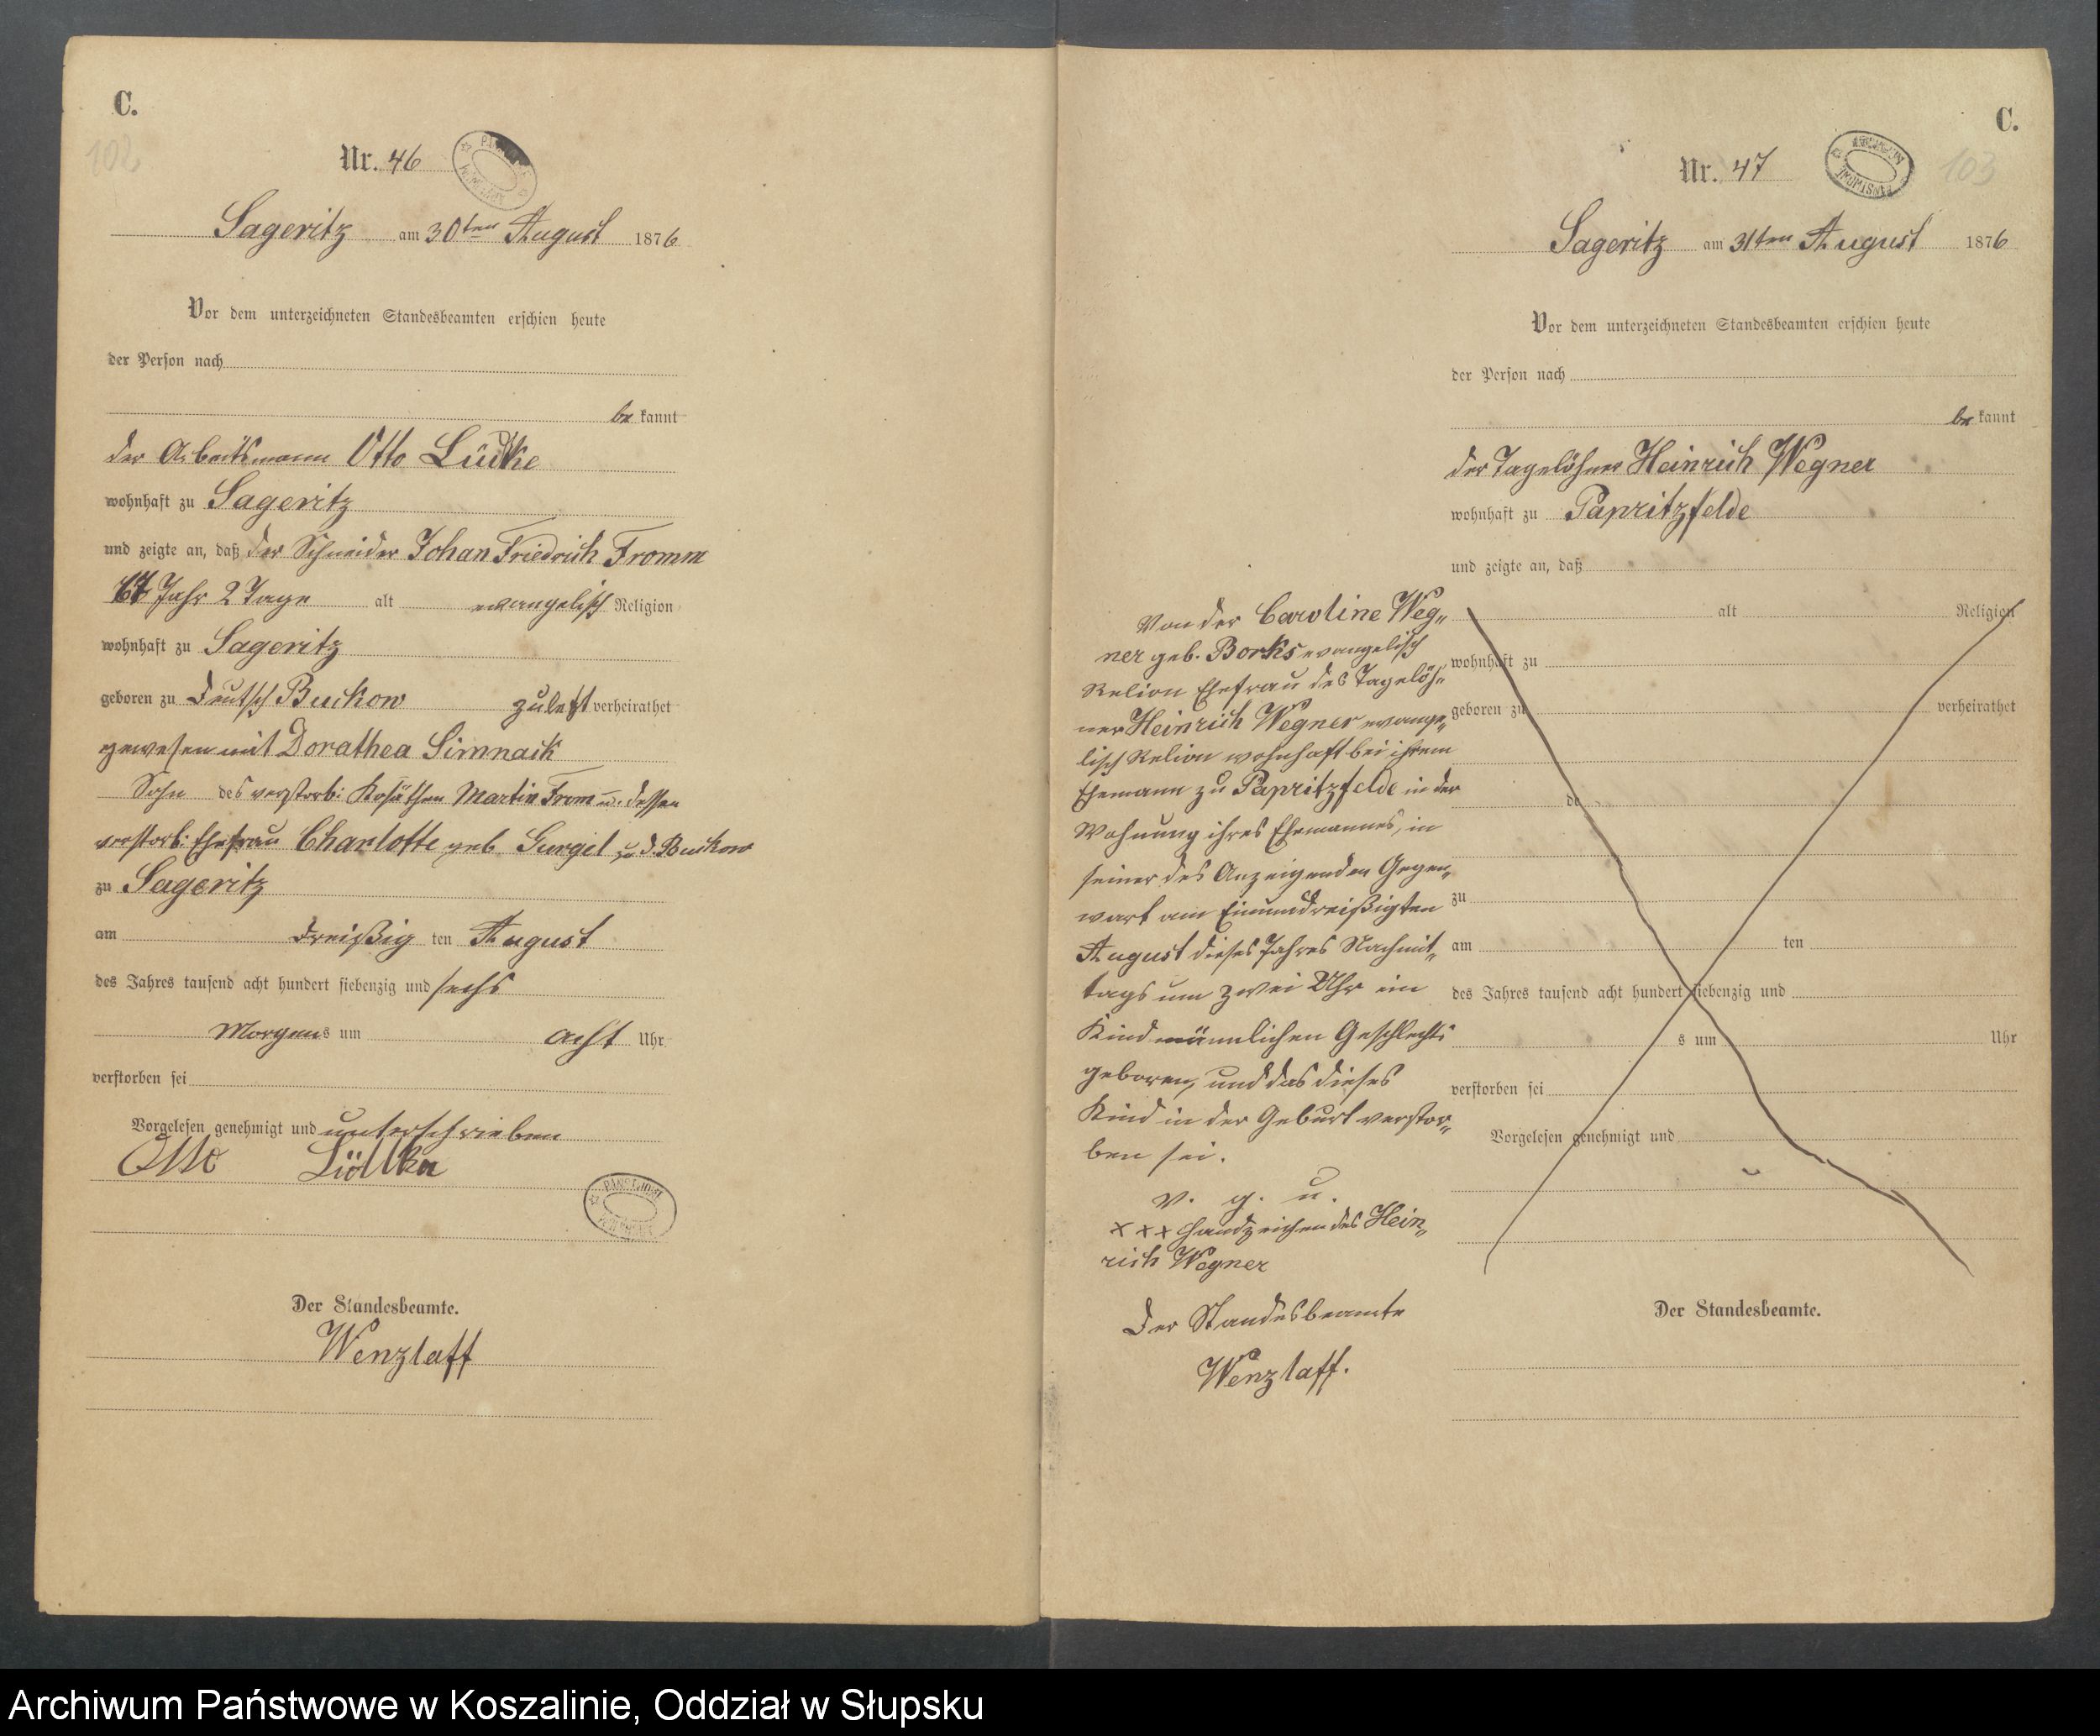 C.
102
Nr. 46
Sageritz am 30ten August 1876
Vor dem unterzeichneten Standesbeamten erschien heute
der Person nach
be kannt
der Arbeitsmann Otto Lüdke
wohnhaft zu Sageritz
und zeigte an, daß der Schneider Johan Friedrich Fromm
Jahr 2 Tage alt evangelisch Religion
wohnhaft zu Sageritz
geboren zu Deutsch Buckow zuletzt verheirathet
gewesen mit Dorathea Simnack
Sohn des verstorb: Kosäthen Martin From u. dessen
verstorb: Ehefrau Charlotte geb. Gurgel zu D. Buckow
zu Sageritz
am dreißig ten August
des Jahres tausend acht hundert siebenzig und sechs
Morgens um acht Uhr
verstorben sei
Vorgelesen genehmigt und unterschrieben
Otto Lüdtke
Der Standesbeamte.
Wenzlaff
C.
103
Nr. 47
Sageritz am 31ten August 1876
Vor dem unterzeichneten Standesbeamten erschien heute
der Person nach
be kannt
der Tagelöhner Heinrich Wegner
wohnhaft zu Papritzfelde
und zeigte an, daß
alt Religion
wohnhaft zu
geboren zu verheirathet
de
zu
am ten
des Jahres tausend acht hundert siebenzig und
s um Uhr
verstorben sei
Vorgelesen genehmigt und
Der Standesbeamte.
Von der Caroline Weg„
ner geb. Borks evangelisch
Relion Ehefrau des Tagelöh„
ner Heinrich Wegner evange„
lisch Relion wohnhaft bei ihrem
Ehemann zu Papritzfelde in der
Wohnung ihres Ehemannes, in
seiner des Anzeigenden Gegen„
wart am Einunddreißigten
August dieses Jahres Nachmit„
tags um zwei Uhr ein
Kind männlichen Geschlechts
geboren, und das dieses
Kind in der Geburt verstor„
ben sei.
v. g. u.
+++ Handzeichen des Hein„
rich Wegner
Der Standesbeamte
Wenzlaff.
Archiwum Państwowe w Koszalinie, Oddział w Słupsku